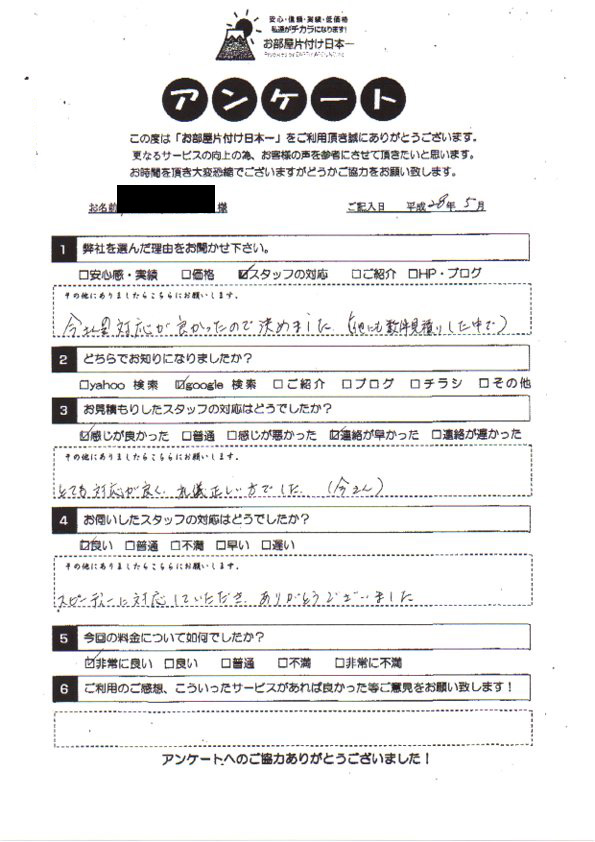 安心・信頼・実績・低価格
私達がチカラになります!
お部屋片付け日本一
アンケート
この度は「お部屋片付け日本一」をご利用頂き誠にありがとうございます。
更なるサービスの向上の為、お客様の声を参考にさせて頂きたいと思います。
お時間を頂き大変恐縮でございますがどうかご協力をお願い致します。
お名前 様 ご記入日 平成28年5月
1 弊社を選んだ理由をお聞かせ下さい。
□安心感・実績 □価格 ☑スタッフの対応 □ご紹介 □HP・ブログ
その他にありましたらこちらにお願いします。
今さんの対応が良かったので決めました (他にも数件見積りした中で)
2 どちらでお知りになりましたか?
□yahoo 検索 ☑google 検索 □ご紹介 □ブログ □チラシ □その他
3 お見積もりしたスタッフの対応はどうでしたか?
☑感じが良かった □普通 □感じが悪かった ☑連絡が早かった □連絡が遅かった
その他にありましたらこちらにお願いします。
とても対応が良く、礼儀正しい方でした。(今さん)
4 お伺いしたスタッフの対応はどうでしたか?
☑良い □普通 □不満 □早い □遅い
その他にありましたらこちらにお願いします。
スピーディーに対応していただき、ありがとうございました
5 今回の料金について如何でしたか?
☑非常に良い □良い □普通 □不満 □非常に不満
6 ご利用のご感想、こういったサービスがあれば良かった等ご意見をお願い致します!
アンケートへのご協力ありがとうございました!